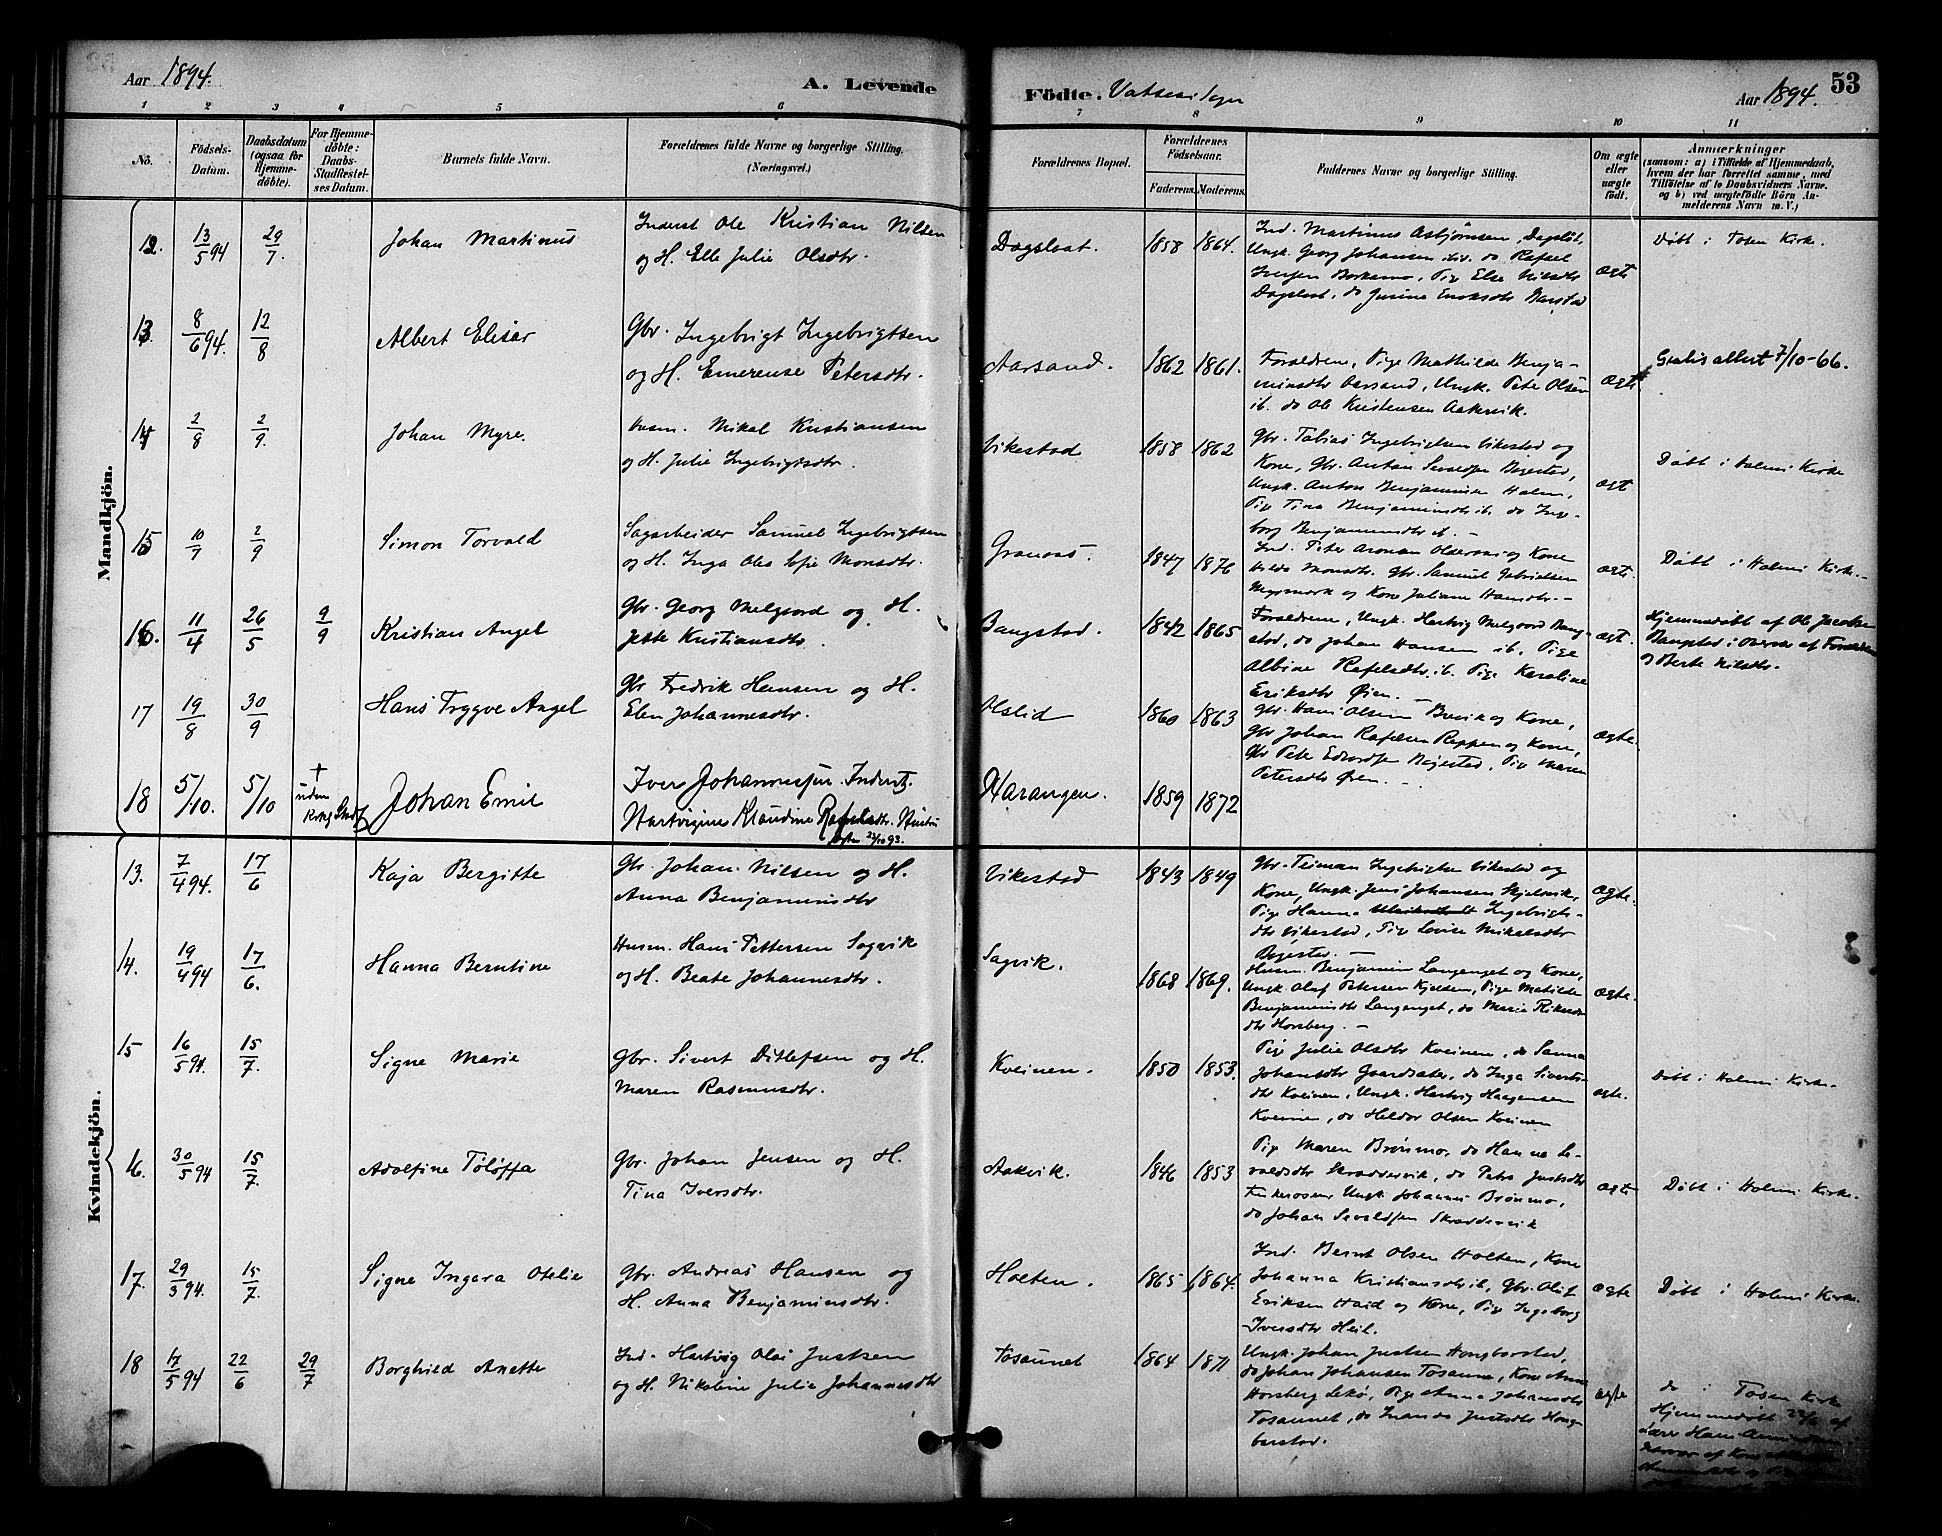 Aar 1894.
A. Levende
Födte.
Aar 1894.
53
1 2 3 4 5 6 7 8 9 10 11
No.
Födsels-
Datum.
Daabsdatum
(ogsaa for
Hjemme-
döbte).
For Hjemme-
döbte:
Daabs-
Stadfæstel-
ses Datum.
Barnets fulde Navn.
Forældrenes fulde Navne og borgerlige Stilling.
(Næringsvei.)
Forældrenes Bopæl.
Forældrenes
Födselsaar.
Faderens. Moderens.
Faddernes Navne og borgerlige Stilling.
Om ægte
eller
uægte
födt.
Anmærkninger
(saasom: a) i Tilfælde af Hjemmedaab,
hvem der har forrettet samme, med
Tilföielse af to Daabsvidners Navne.
og b) ved uægtefödte Börn An-
melderens Navn m. V.)
Mandkjön.
12. 13/5 94 29/7. Johan Martinus
Inderst Ole Kristian Nilsen
og H. Elle Julie Olsdtr.
Dagslaat. 1858 1864.
Ind. Martinus Asbjørnsen, Dagslåt,
Ungk. Georg Johansen ib. do Rafael
Iversen Borkamo, Pige Else Nilsdtr
Dagslaat, do Jusine Enoksdtr
ægte
Døbt i Tosen Kirke.
13 8/6 94. 12/8 Albert Elisar
Gbr. Ingebrigt Ingebrigtsen
og H. Emerense Petersdtr.
Aarsand. 1862 1861.
Forældrene, Pige Mathilde Benja-
minsdtr Aarsand, Ungk. Peter Olsen
ib. do Ole Kristensen Aakvik.
ægte
7/10-66.
14 2/8 2/9. Johan Myre.
Husm. Mikal Kristiansen
og H. Julie Ingebrigtsdtr.
Vikestad 1858 1862
Gbr. Tobias Ingebrigtsen Vikestad og
Kone, Gbr. Anton Sevaldsen Bogestad,
Ungk. Anton Benjaminsen Holm,
Pige Tina Benjaminsdtr ib. do Inge-
borg Benjaminsdtr ib. -
ægt
Døbt i Holms Kirke
15 10/7 2/9 Simon Torvald
Sagarbeider Samuel Ingebrigtsen
og H. Inga Monsdtr.
Granaas. 1847 1876
Ind. Peter Aronsen og Kone
Hilda Monsdtr. Gbr. Samuel Gabrielsen
og Kone Juliane Hansdtr. -
ægte.
Døbt i Holms Kirke. -
16. 11/4 26/5 9/9 Kristian Angel
Gbr. Georg Melgaard og H.
Jette Kristiansdtr.
Bangstad. 1842 1865
Forældrene, Ungk. Hartvig Melgaard Bang-
stad, do Johan Hansen ib. Pige
Albine Rafelsdtr ib. Pige Karoline
Eriksdtr Øien. -
ægt.
Hjemmedøbt af Ole Jacobsen
Bangstad i Overvær af Forældrene
og Berte Nilsdtr.
17 19/8 30/9 Hans Tryggve Angel
Gbr Fredrik Hansen og H.
Elen Johannesdtr.
Uslid 1860 1863
Gbr. Hans Olsen Brevik og Kone,
Gbr Johan Rafelsen Reppen og Kone,
Gbr Peter Edvardsen Bogestad, Pige Maren
Petersdtr Øien. -
ægte.
18 5/10. 5/10 + uden Kirkg Stadf
Johan Emil
Iver Johannessen Inderst.
Hartvigine Klaudine Rafelsdtr. Hustru
23/10 93.
Harangen. 1859 1872
Kvindekjön.
13. 7/4 94. 17/6 Kaja Bergitte
Gbr. Johan Nilsen og H.
Anna Benjaminsdtr
Vikestad 1843 1849
Gbr. Teiman Ingebrigtsen Vikestad og
Kone, Ungk. Jens Johansen Skjelsvik,
Pige Hanna Ingebrigts-
dtr Vikestad, Pige Lovise Mikalsdtr
Bogestad. -
ægte.
14. 19/4 94 17/6. Hanna Berntine
Husm. Hans Pettersen Sagvik
og H. Beate Johannesdtr.
Sagvik. 1868 1869.
Husm. Benjamin Langenget og Kone,
Ungk. Olaf Petersen Kjelsen, Pige Matilde
Benjaminsdtr Langenget, do Marie
Horsberg. -
ægte.
15 16/5 94. 15/7. Signe Marie
Gbr. Sivert Ditlefsen og H.
Maren Rasmusdtr.
Kveinen. 1850 1853.
Pige Julie Olsdtr Kveinen, do Sanna
Johansdtr Gaardsæter, do Inga Siverts-
dtr Kveinen, Ungk. Hartvig Haagensen
Kveinen, do Heldor Olsen Kveinen
ægte.
Døbt i Holms Kirke.
16. 30/5 94 15/7. Adolfine Töløffa
Gbr. Johan Jensen og H.
Tina Iversdtr.
Aakvik. 1846 1853
Pige Maren Brønmo, do Hanna Se-
valdsdtr Skraddervik, do Petra Justsdtr
Ungk. Johannes Brønmo,
do Johan Sevaldsen Skraddervik
ægte
Døbt i Holms Kirke.
17. 29/3 94. 15/7. Signe Ingara Otelie
Gbr. Andreas Hansen og
H. Anna Benjaminsdtr.
Holten. 1865 1864.
Ind. Bernt Olsen Holten, Kone
Johanna Kristiansdtr ib, Gbr. Oluf
Eriksen Haid og Kone, Pige Ingeborg
Iversdtr Heil.
ægte
Døbt i Holms Kirke.
18 17/5 94 22/6 29/7 Borghild Anette
Ind. Hartvig Olai Justsen
og H. Nikoline Julie Johannesdtr
Tosaunet 1864 1871
Ungk. Johan Justsen Hongbarstad,
do Johan Johansen Tosaune, Kone Anna
Horsberg Lekø, Pige Anna Johansdtr
Tosaunet, do Justsdtr Hong-
barstad.
ægte
do i Tosen Kirke
Hjemmedøbt 22/6 af